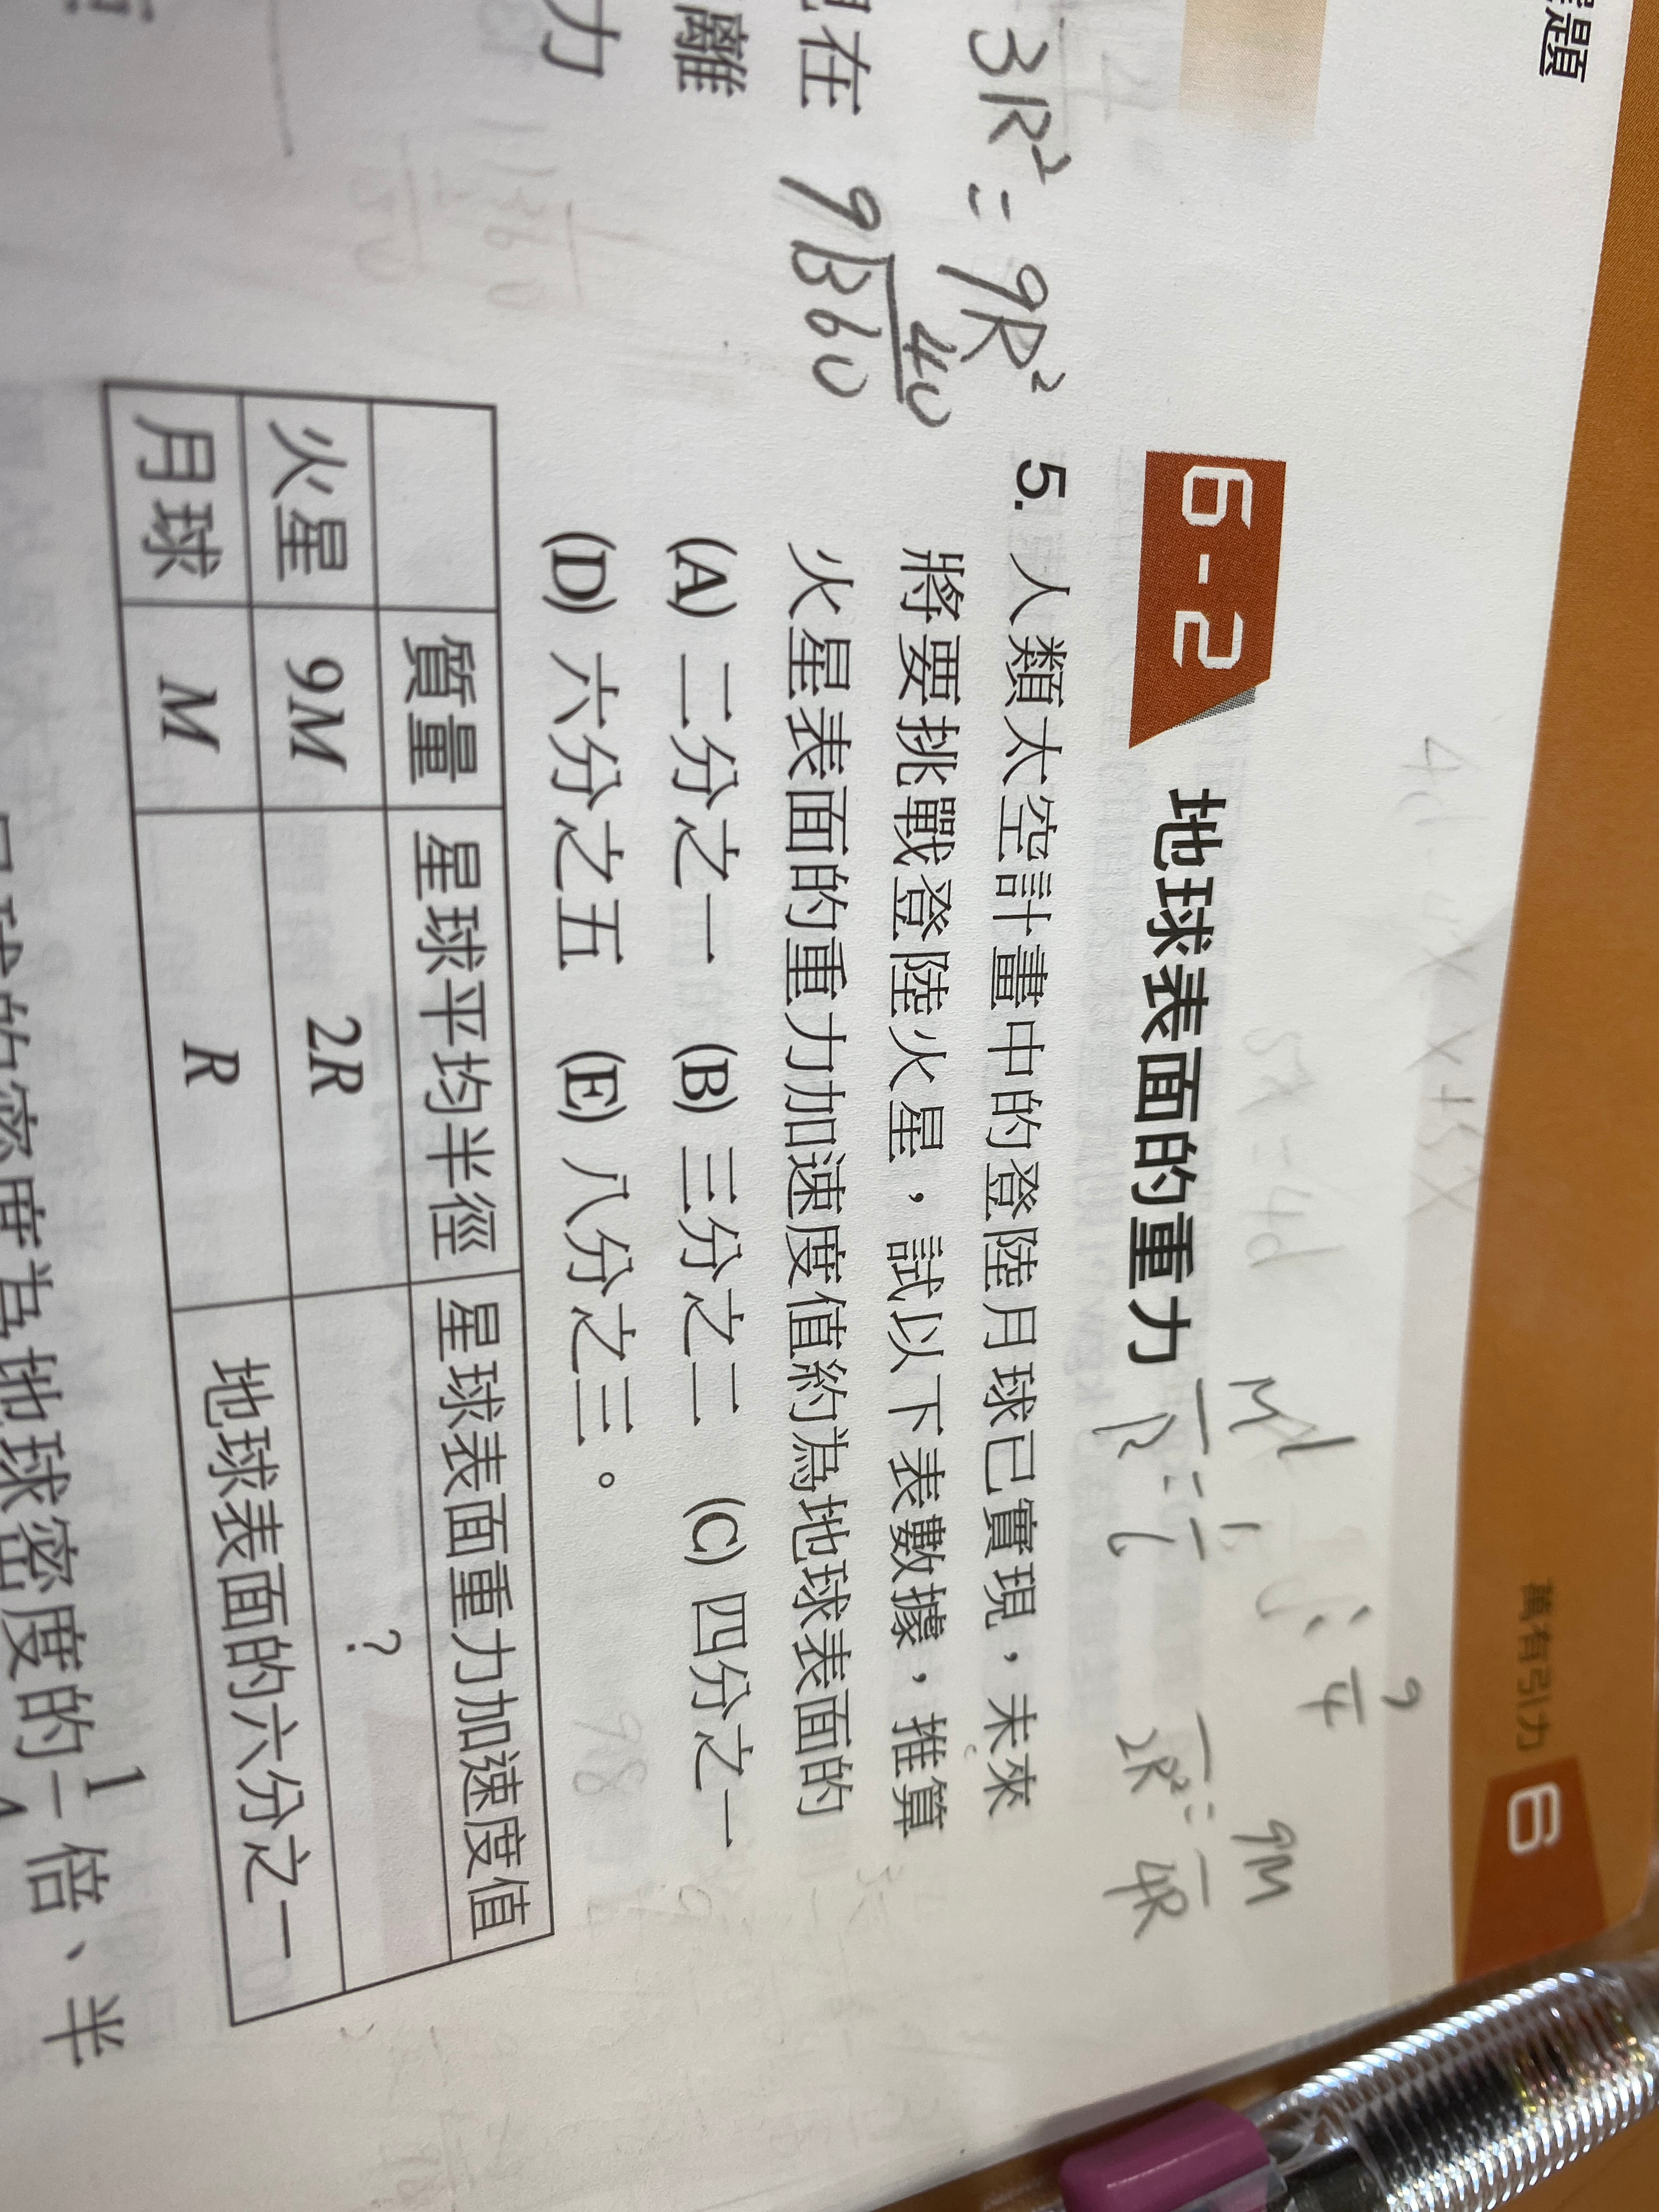 題
萬有引力 6
3R² = 9R²
在
離
力
9 360
40
6-2 地球表面的重力
9M
2R²
4R
9
4
5. 人類太空計畫中的登陸月球已實現，未來
將要挑戰登陸火星，試以下表數據，推算
火星表面的重力加速度值約為地球表面的
(A) 二分之一 (B) 三分之二 (C) 四分之一
(D) 六分之五 (E) 八分之三。
質量 星球平均半徑 星球表面重力加速度值
火星 9M 2R ？
月球 M R 地球表面的六分之一
的密度為地球密度的 1 倍、半